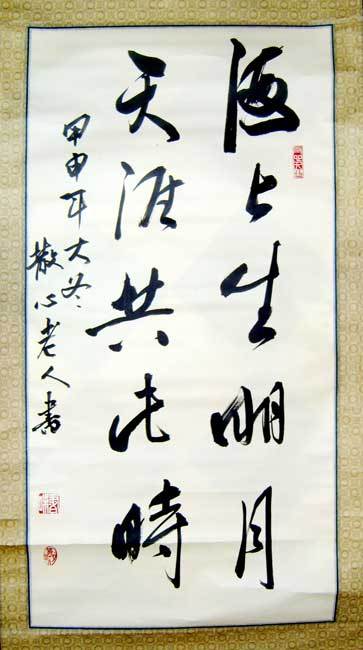 海上生明月
天涯共此時
甲申年大冬
散心老人書